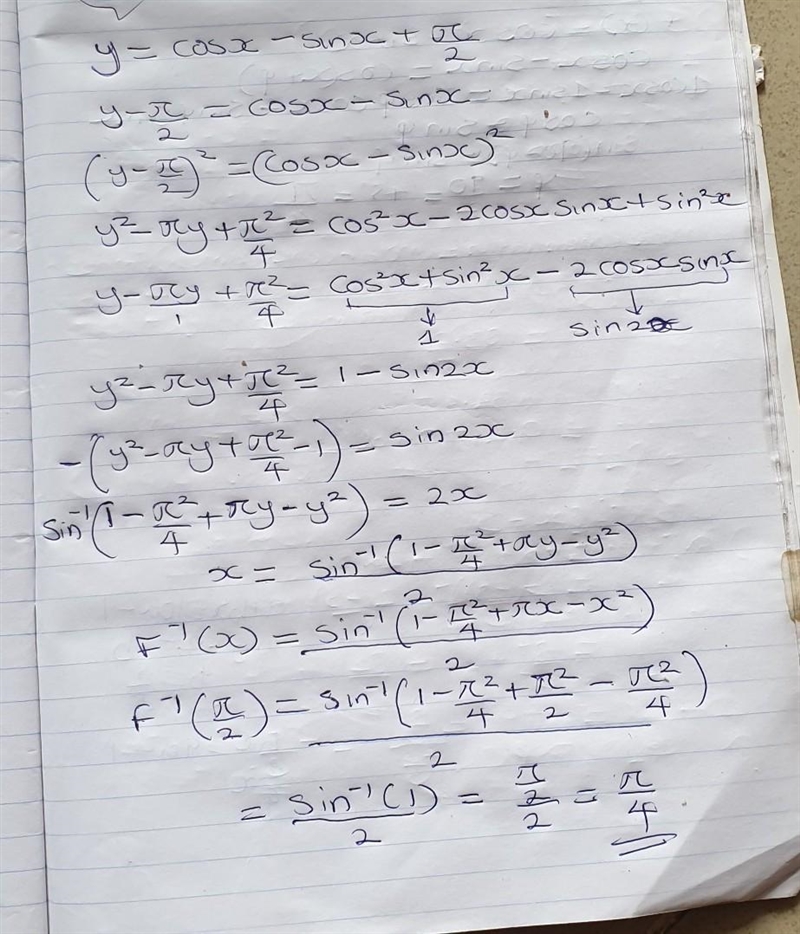 y = cosx - sinx + π/2
y - π/2 = cosx - sinx
(y - π/2)² = (cosx - sinx)²
y² - πy + π²/4 = cos²x - 2cosx sinx + sin²x
y - πy/1 + π²/4 = cos²x + sin²x - 2cosx sinx
↓ ↓
1 sin2x
y² - πy + π²/4 = 1 - sin2x
-(y² - πy + π²/4 - 1) = sin2x
sin⁻¹(1 - π²/4 + πy - y²) = 2x
x = sin⁻¹(1 - π²/4 + πy - y²)/2
F⁻¹(x) = sin⁻¹(1 - π²/4 + πx - x²)/2
F⁻¹(π/2) = sin⁻¹(1 - π²/4 + π²/2 - π²/4)/2
= sin⁻¹(1)/2 = π/2/2 = π/4